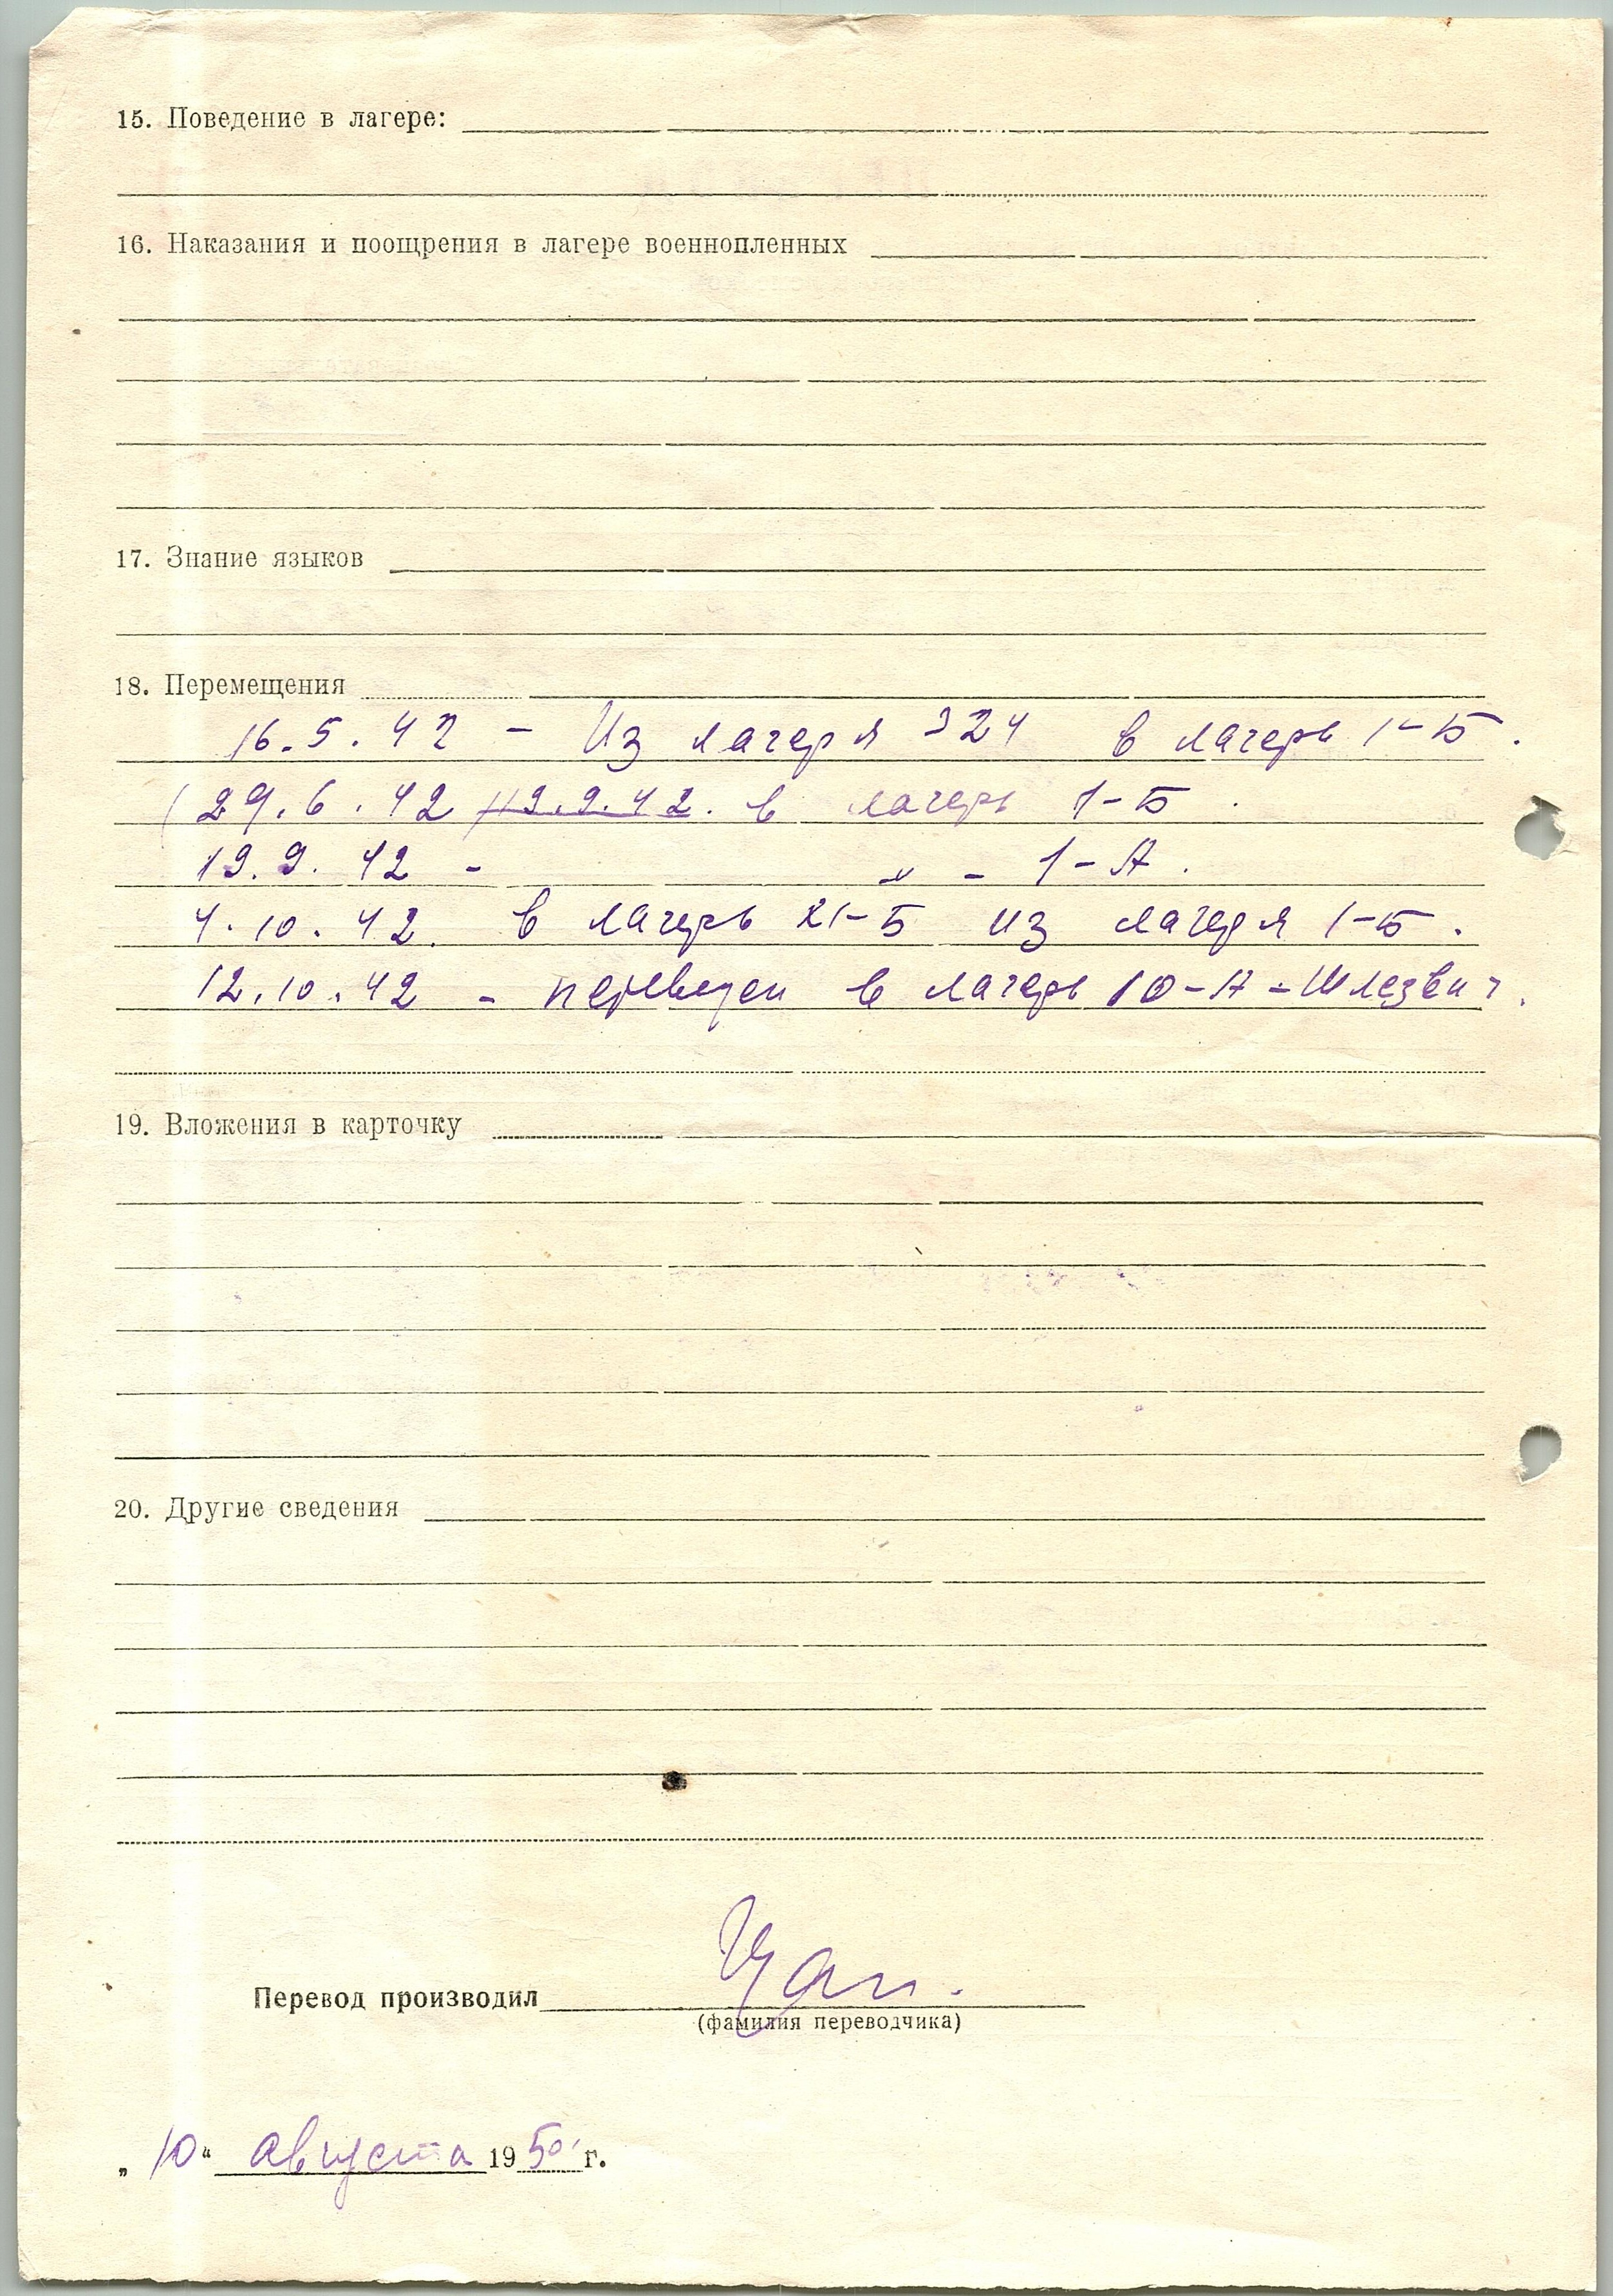 15. Поведение в лагере:
16. Наказания и поощрения в лагере военнопленных
17. Знание языков
18. Перемещения
16.5.42 – Из лагеря 324 в лагерь 1-Б.
29.6.42 19.9.42. в лагерь 1-Б.
19.9.42 - " - 1-А.
4.10.42. в лагерь XI-Б из лагеря 1-Б.
12.10.42 - переведен в лагерь 10-А-Шлезвиг.
19. Вложения в карточку
20. Другие сведения
Перевод производил
(фамилия переводчика)
„10“ августа 1950 г.